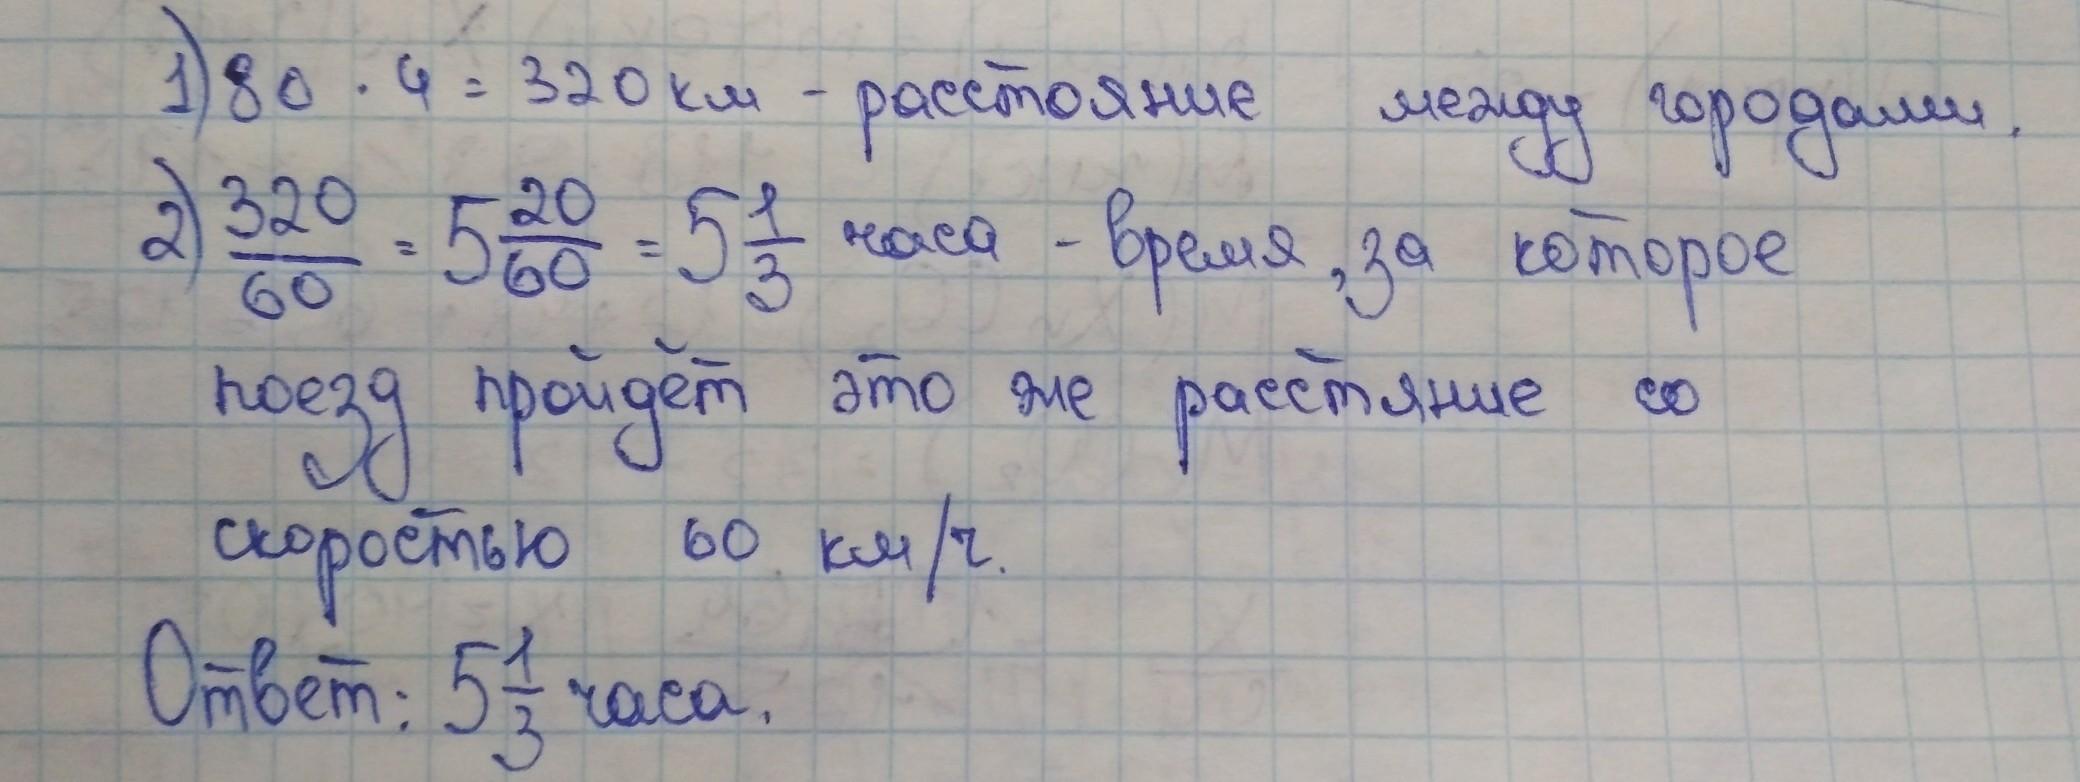 1) 80 · 4 = 320 км - расстояние между городами.
2) 320/60 = 5 20/60 = 5 1/3 часа - время, за которое
поезд пройдёт это же расстяние со
скоростью 60 км/ч.
Ответ: 5 1/3 часа.